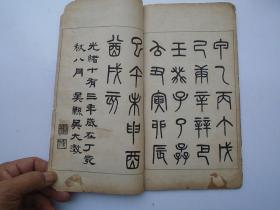 甲乙丙丁戊
己巴庚辛辡
壬癸子了孨
𠫓丑寅卯辰
巳午未申酉
酋戌亥
光緒十有三年歲在丁亥
秋八月 吳縣吳大澂